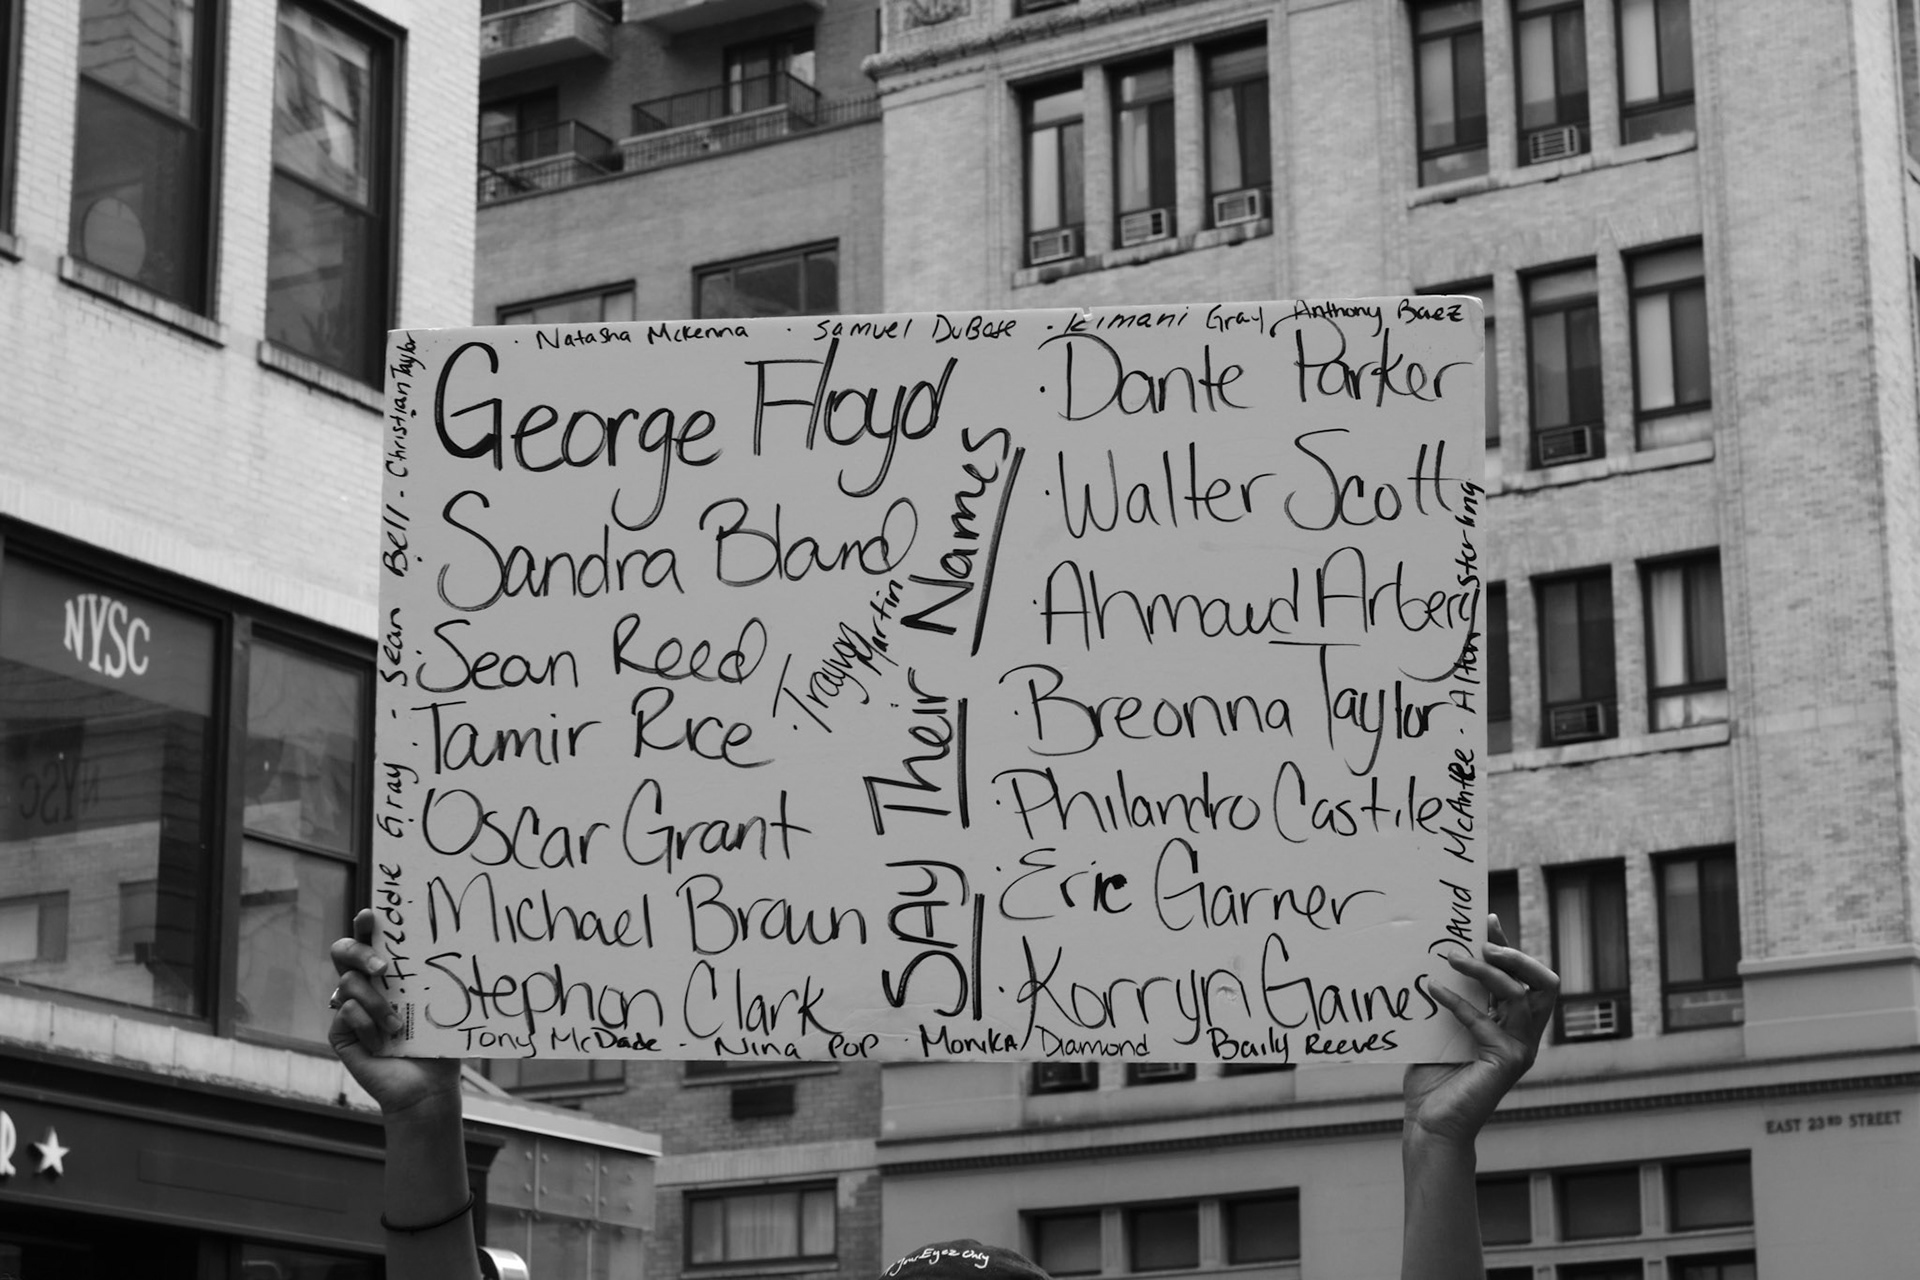 Natasha McKenna · Samuel DuBose · Kimani Gray, Anthony Baez
George Floyd
Sandra Bland
Sean Reed
Tamir Rice
Oscar Grant
Michael Brown
Stephon Clark
· Trayvon Martin
SAY Their Names
· Dante Parker
· Walter Scott
· Ahmaud Arbery
· Breonna Taylor
· Philandro Castile
· Eric Garner
· Korryn Gaines
· Freddie Gray · - Sean Bell - Christian Taylor
David McAntee · Alton Sterling
Tony McDade - Nina Pop · Monika Diamond Baily Reeves
NYSC
NYSC
R ★
EAST 23RD STREET
Your Eyez Only